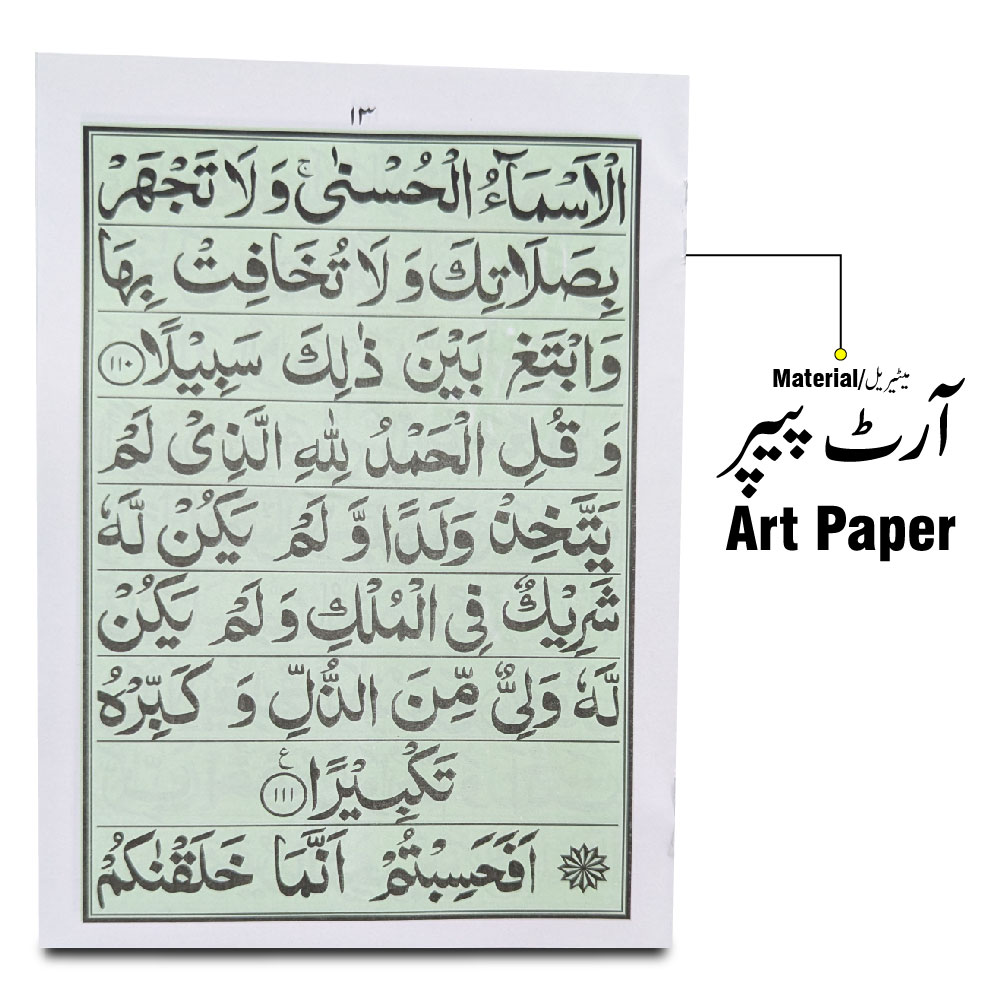 ۱۳
الْاَسْمَآءُ الْحُسْنٰىۚ وَ لَا تَجْهَرْ
بِصَلَاتِكَ وَ لَا تُخَافِتْ بِهَا
وَابْتَغِ بَيْنَ ذٰلِكَ سَبِيْلًا ۱۱۰
وَ قُلِ الْحَمْدُ لِلّٰهِ الَّذِىْ لَمْ
يَتَّخِذْ وَلَدًا وَّ لَمْ يَكُنْ لَّهٗ
شَرِيْكٌ فِى الْمُلْكِ وَ لَمْ يَكُنْ
لَّهٗ وَلِىٌّ مِّنَ الذُّلِّ وَ كَبِّرْهُ
تَكْبِيْرًا ۱۱۱ ع
اَفَحَسِبْتُمْ اَنَّمَا خَلَقْنٰكُمْ
Material/میٹیریل
آرٹ پیپر
Art Paper